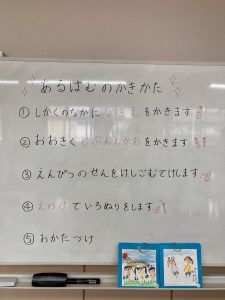 あるばむのかきかた
① しかくのなかに なまえ をかきます
② おおきく じぶんのかお をかきます
③ えんぴつのせんをけしごむでけします
④ えのぐ でいろぬりをします
⑤ おかたづけ